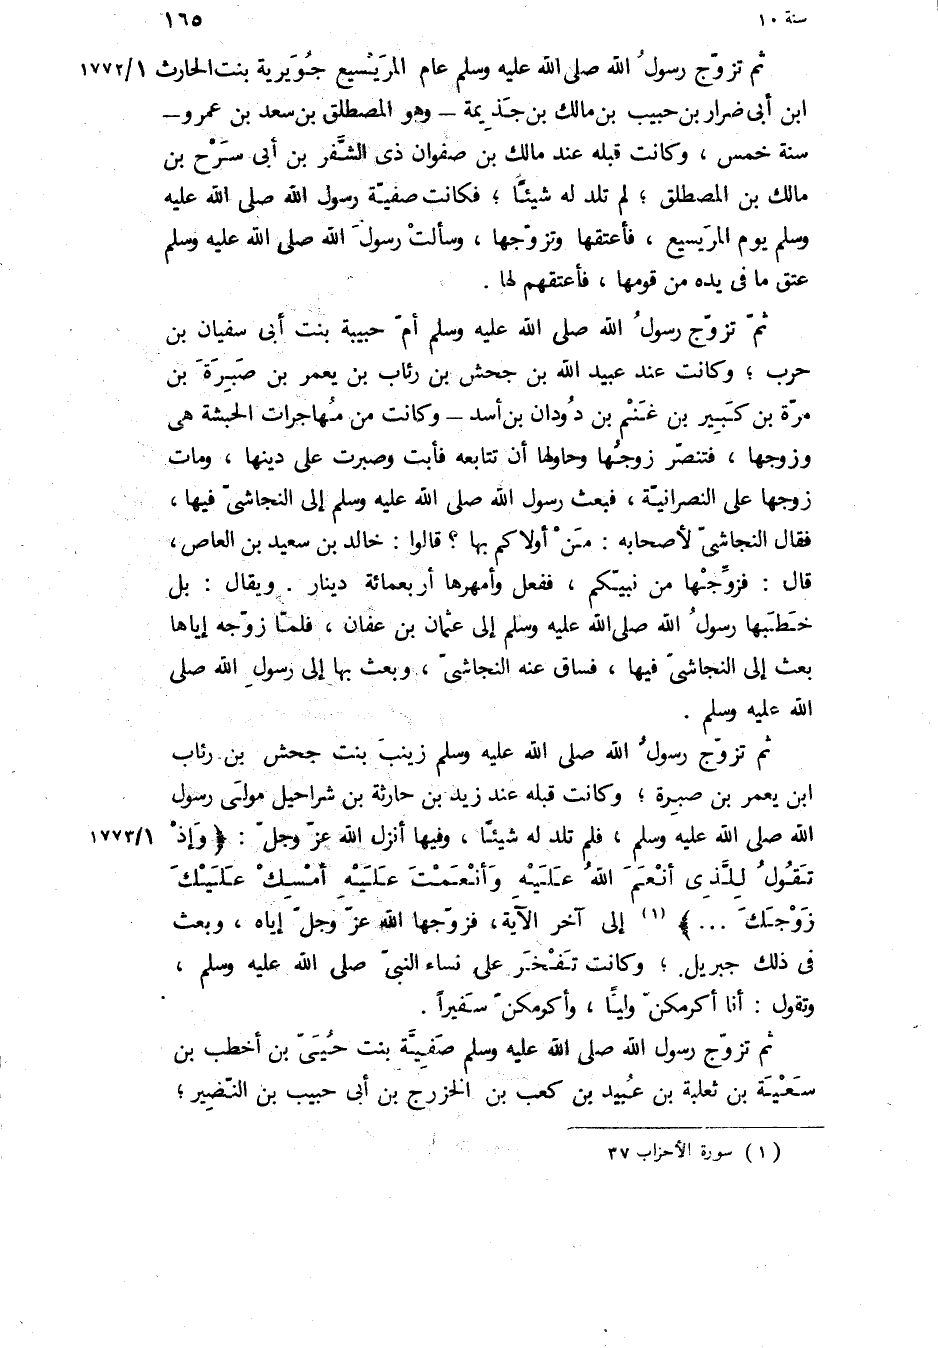 سنة ١٠
١٦٥
ثم تزوّج رسولُ الله صلى الله عليه وسلم عام المرَيْسيع جُوَيرية بنت الحارث ١/١٧٧٢
ابن أبى ضرار بن حبيب بن مالك بن جَذيمة – وهو المصطلق بن سعد بن عمرو –
سنة خمس ، وكانت قبله عند مالك بن صفوان ذى الشَّفْر بن أبى سَرْح بن
مالك بن المصطلق ؛ لم تلد له شيئًا ؛ فكانت صفيّة رسول الله صلى الله عليه
وسلم يوم المرَيسيع ، فأعتقها وتزوّجها ، وسألتْ رسولَ الله صلى الله عليه وسلم
عتق ما فى يده من قومها ، فأعتقهم لها .
ثمّ تزوّج رسولُ الله صلى الله عليه وسلم أمّ حبيبة بنت أبى سفيان بن
حرب ؛ وكانت عند عبيد الله بن جحش بن رئاب بن يعمر بن صَبِرَةَ بن
مرّة بن كَبِير بن غَنْم بن دُودان بن أسد – وكانت من مُهاجرات الحبشة هى
وزوجها ، فتنصّر زوجُها وحاولها أن تتابعه فأبت وصبرت على دينها ، ومات
زوجها على النصرانيّة ، فبعث رسول الله صلى الله عليه وسلم إلى النجاشىّ فيها ،
فقال النجاشىّ لأصحابه : مَنْ أولاكم بها ؟ قالوا : خالد بن سعيد بن العاص،
قال : فزوِّجْها من نبيّكم ، ففعل وأمهرها أربعمائة دينار . ويقال : بل
خَطَبها رسولُ الله صلى الله عليه وسلم إلى عثمان بن عفان ، فلمّا زوّجه إياها
بعث إلى النجاشىّ فيها ، فساق عنه النجاشىّ ، وبعث بها إلى رسول الله صلى
الله عليه وسلم .
ثم تزوّج رسولُ الله صلى الله عليه وسلم زينبَ بنت جحش بن رئاب
ابن يعمر بن صبرة ؛ وكانت قبله عند زيد بن حارثة بن شراحيل مولَى رسول
الله صلى الله عليه وسلم ، فلم تلد له شيئًا ، وفيها أنزل الله عزّ وجلّ : ﴿ وَإِذْ ١/١٧٧٣
تَقُولُ لِلَّذِى أَنْعَمَ اللهُ عَلَيْهِ وَأَنْعَمْتَ عَلَيْهِ أَمْسِكْ عَلَيْكَ
زَوْجَكَ ... ﴾ (١) إلى آخر الآية، فزوّجها الله عزّ وجلّ إياه ، وبعث
فى ذلك جبريل ؛ وكانت تَفْخَر على نساء النبىّ صلى الله عليه وسلم ،
وتقول : أنا أكرمكنّ وليًّا ، وأكرمكنّ سَفيراً .
ثم تزوّج رسول الله صلى الله عليه وسلم صَفِيَّة بنت حُيَىّ بن أخطب بن
سَعْيَة بن ثعلبة بن عُبيد بن كعب بن الخزرج بن أبى حبيب بن النّضِير ؛
(١) سورة الأحزاب ٣٧